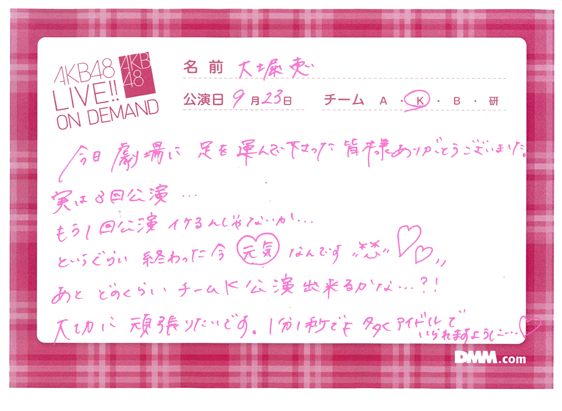 AKB48
LIVE!!
ON DEMAND
AKB
48
名前 大堀恵
公演日 9月23日 チーム A・K・B・研
今日 劇場に 足を運んで下さった 皆様ありがとうございました。
実は3回公演…
もう1回公演 イケるんじゃないか…
というぐらい 終わった今 元気 なんです "笑"
あと どのくらい チームK 公演 出来るかな…?!
大切に 頑張りたいです。1分1秒でも 多くアイドルで
いられますように…
DMM.com